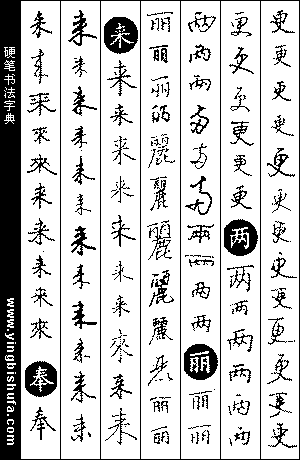 更更更更更更更更更更更更更
更更更更更更两两两两两两两
两两两两两两两两两两丽丽丽
丽丽丽丽麗麗麗麗麗丽丽丽
来来来来来来来来來来来
来来来来来来来来来来来来
来来来來來来来来來來奉奉
硬笔书法字典
www.yingbishufa.com